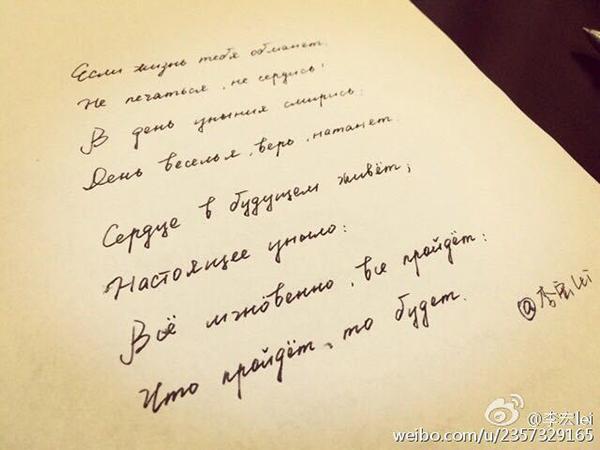 Если жизнь тебя обманет.
Не печалься, не сердись!
В день уныния смирись:
День веселья, верь, натанет.
Сердце в будущем живёт;
Настоящее уныло:
Всё мгновенно, все пройдёт:
Что пройдёт, то будет.
@李宏lei
@李宏lei
weibo.com/u/2357329165